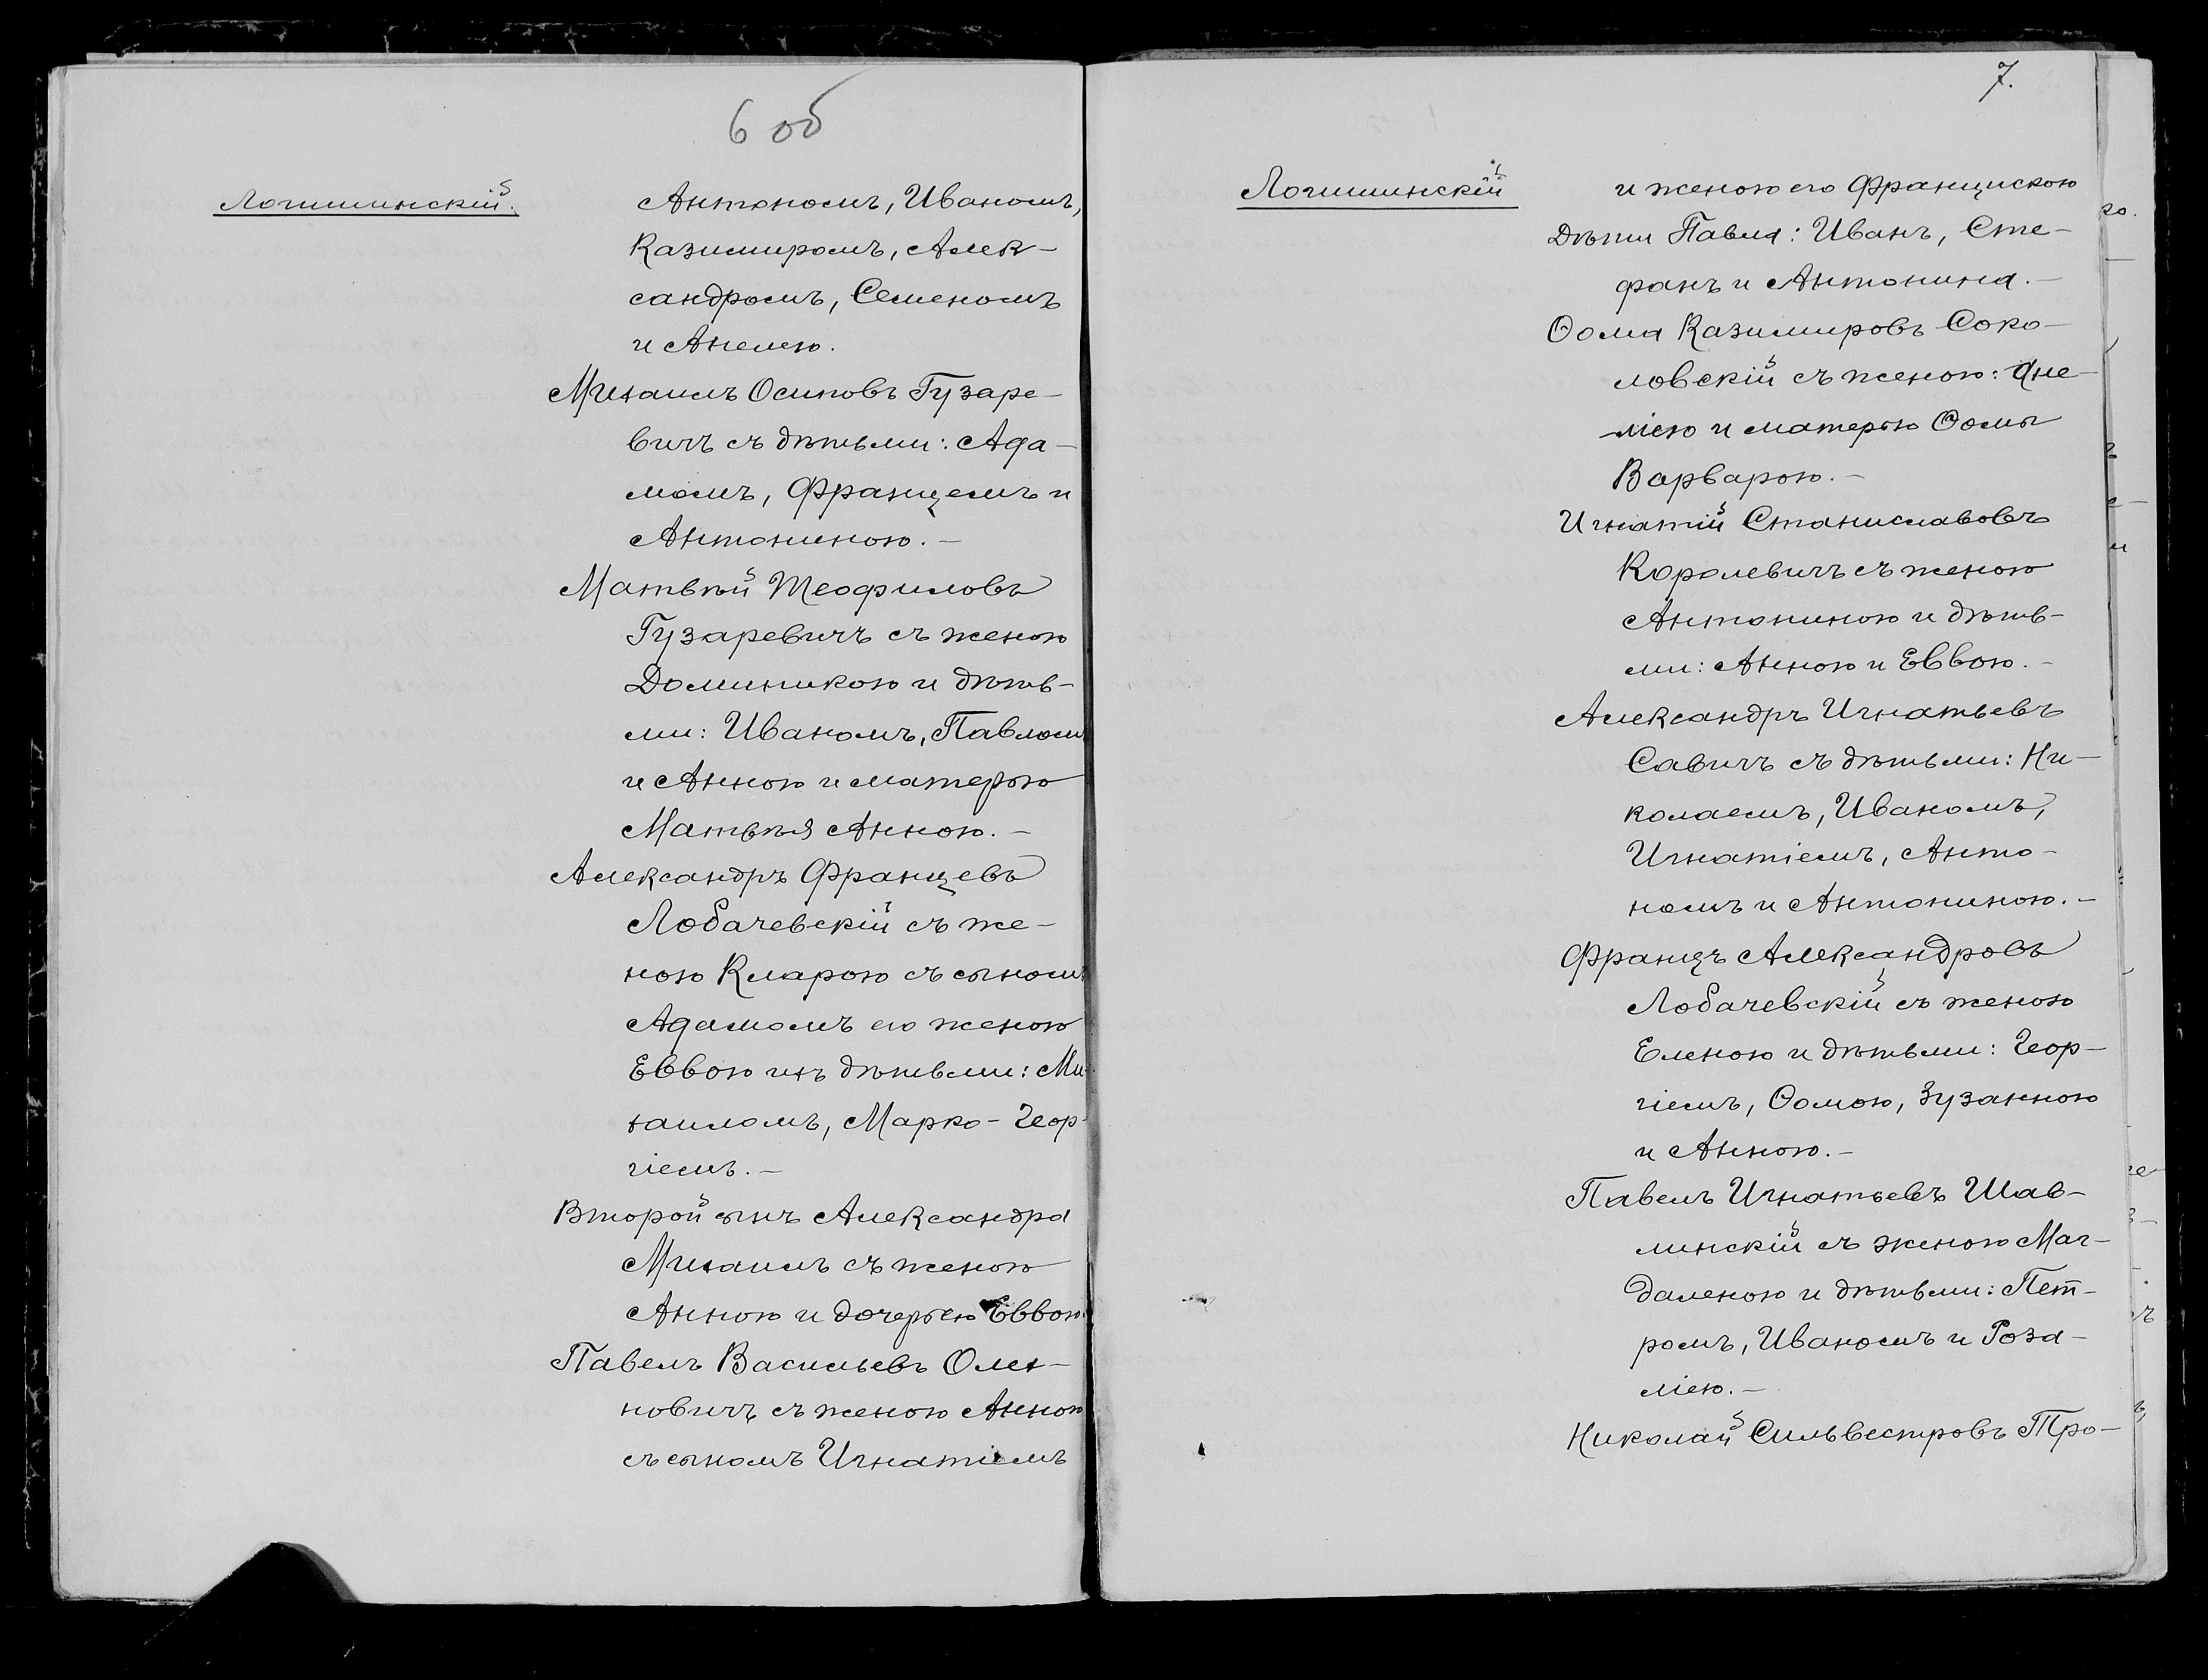 6 об
Логишинскій.
Антономъ, Иваномъ,
Казимиромъ, Алек-
сандромъ, Семеномъ
и Анелею.
Михаилъ Осиповъ Гузаре-
вичъ съ дѣтьми: Ада-
момъ, Францемъ и
Антониною.-
Матвѣй Теофиловъ
Гузаревичъ съ женою
Доминикою и дѣть-
ми: Иваномъ, Павломъ
и Анною и матерью
Матвѣя Анною.-
Александръ Францевъ
Лобачевскій съ же-
ною Кларою съ сыномъ
Адамомъ его женою
Еввою ихъ дѣтьми: Ми-
хаиломъ, Марко-Геор-
гіемъ.-
Второй сынъ Александра
Михаилъ съ женою
Анною и дочерью Еввою.
Павелъ Васильевъ Олех-
новичъ съ женою Анною
съ сыномъ Игнатіемъ
7.
Логишинскій
и женою его Францискою
Дѣти Павла: Иванъ, Сте-
фанъ и Антонина.-
Ѳома Казимировъ Соко-
ловскій съ женою: Ане-
ліею и матерью Ѳомы
Варварою.-
Игнатій Станиславовъ
Королевичъ съ женою
Антониною и дѣть-
ми: Анною и Еввою.-
Александръ Игнатьевъ
Савичъ съ дѣтьми: Ни-
колаемъ, Иваномъ,
Игнатіемъ, Анто-
номъ и Антониною.-
Францъ Александровъ
Лобачевскій съ женою
Еленою и дѣтьми: Геор-
гіемъ, Ѳомою, Зузанною
и Анною.-
Павелъ Игнатьевъ Шав-
линскій съ женою Маг-
даленою и дѣтьми: Пет-
ромъ, Иваномъ и Роза-
ліею.-
Николай Сильвестровъ Тро-